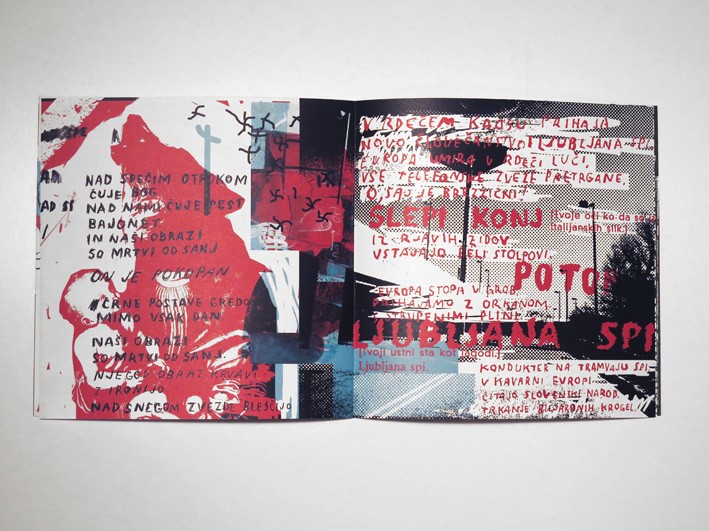 NAD SPEČIM OTROKOM
ČUJE BOG.
NAD NAMI ČUJE PEST
BAJONET
IN NAŠI OBRAZI
SO MRTVI OD SANJ.
ON JE POKOPAN
ČRNE POSTAVE GREDO
MIMO VSAK DAN
NAŠI OBRAZI
SO MRTVI OD SANJ.
NJEGOV OBRAZ KRVAVI
Z IRONIJO.
NAD SNEGOM ZVEZDE BLEŠČIJO
V RDEČEM KAOSU PRIHAJA
NOVO ČLOVEČANSTVO! LJUBLJANA SPI.
EVROPA UMIRA V RDEČI LUČI.
VSE TELEFONSKE ZVEZE PRETRGANE.
O, SAJ JE BREZŽIČNI!
SLEPI KONJ
[tvoje oči ko da so z
italijanskih slik.]
IZ RJAVIH ZIDOV
VSTAJAJO BELI STOLPOVI.
POTOP
EVROPA STOPA V GROB.
PRIHAJAMO Z ORKANOM
S STRUPENIMI PLINI.
LJUBLJANA SPI
[tvoji ustni sta kot jagodi.]
Ljubljana spi.
KONDUKTER NA TRAMVAJU SPI.
V KAVARNI EVROPI
ČITAJO SLOVENSKI NAROD.
TRKANJE BILJARDNIH KROGEL.